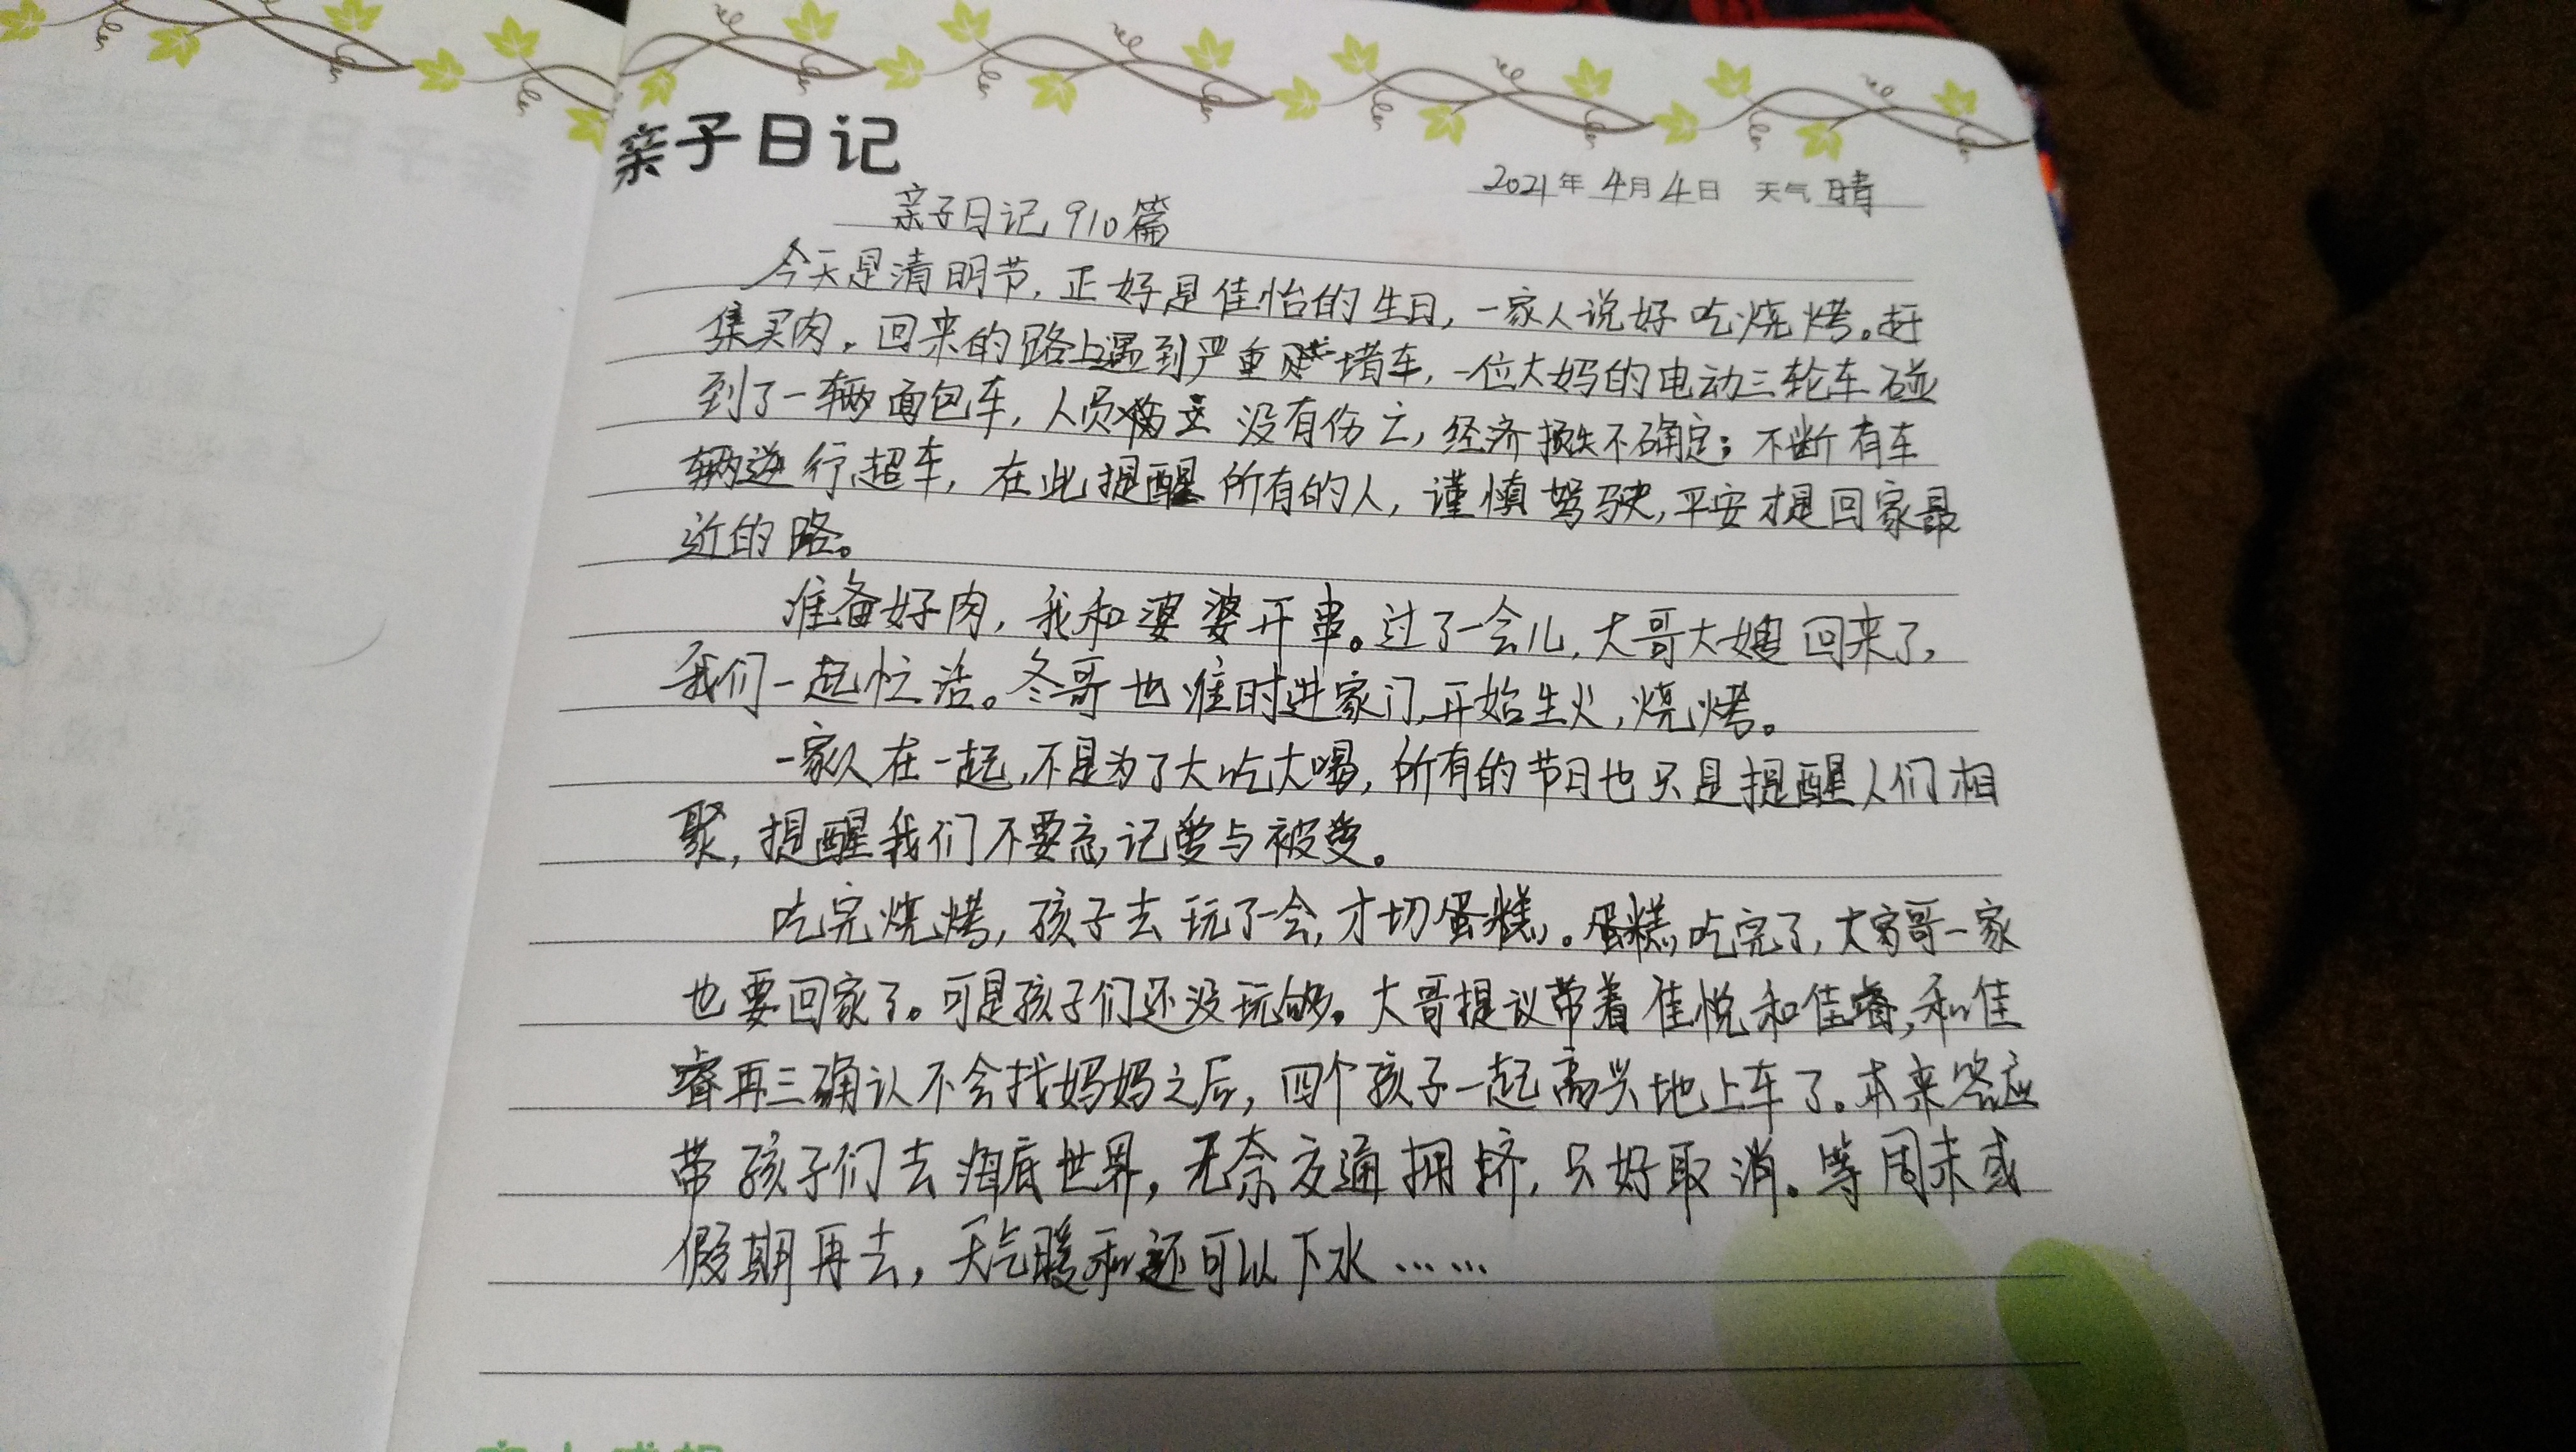 亲子日记
2021年4月4日 天气 晴
亲子日记 910篇
今天是清明节,正好是佳怡的生日,一家人说好吃烧烤。赶
集买肉,回来的路上遇到严重堵车,一位大妈的电动三轮车碰
到了一辆面包车,人员没有伤亡,经济损失不确定;不断有车
辆逆行超车,在此提醒所有的人,谨慎驾驶,平安才是回家最
近的路。
准备好肉,我和婆婆开串。过了一会儿,大哥大嫂回来了,
我们一起忙活。冬哥也准时进家门,开始生火,烧烤。
一家人在一起,不是为了大吃大喝,所有的节日也只是提醒人们相
聚,提醒我们不要忘记爱与被爱。
吃完烧烤,孩子去玩了一会,才切蛋糕。蛋糕吃完了,大哥一家
也要回家了。可是孩子们还没玩够。大哥提议带着佳悦和佳睿,和佳
睿再三确认不会找妈妈之后,四个孩子一起高兴地上车了。本来答应
带孩子们去海底世界,无奈交通拥挤,只好取消。等周末或
假期再去,天气暖和还可以下水……